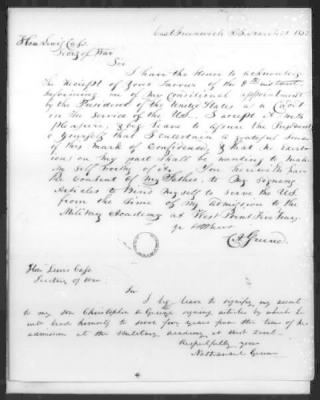 East Greenwich
Hon Lewis Cass
Sec'y of War
Sir
I have the Honor to acknowledge
the Receipt of your Favour of the
informing me of my Conditional appointment
by the President of the United States as a Cadet
in the service of the U.S. I accept it with
pleasure, & beg leave to assure the President
& yourself that I entertain a grateful sense
of this mark of Confidence, & that no exert-
ions on my part shall be wanting to make
my self worthy of it. You herewith have
the consent of my Father, to my signing
articles to bind myself to serve the US.
from the time of my admission to the
Military Academy at West Point Five Years
C. A. Greene
Hon Lewis Cass
Secretary of War
Sir
I beg leave to signify my assent
to my son Christopher A Greene signing articles by which he
will bind himself to serve five years from the time of his
admission at the Military Academy at West Point.
Respectfully your
Nathanael Greene